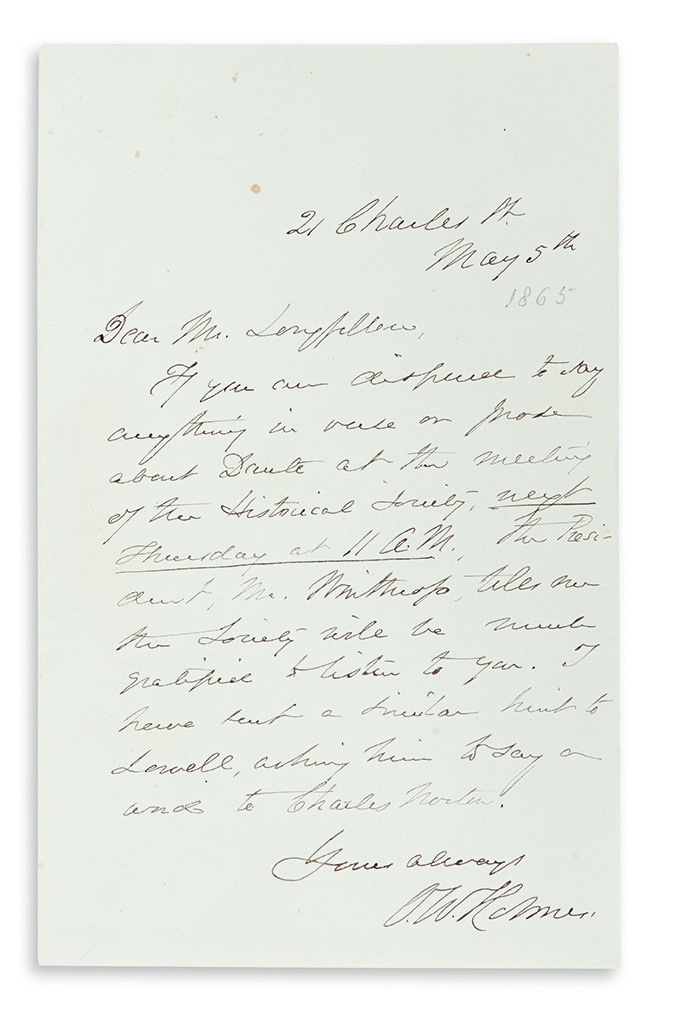 21 Charles St.
May 5th
1865
Dear Mr. Longfellow,
If you are disposed to say
anything in verse or prose
about Dante at the meeting
of the Historical Society, next
Thursday at 11 A.M., the Presi-
dent, Mr. Winthrop, tells me
the Society will be much
gratified to listen to you. I
have sent a similar hint to
Lowell, asking him to say a
word to Charles Norton.
Yours always
O. W. Holmes.